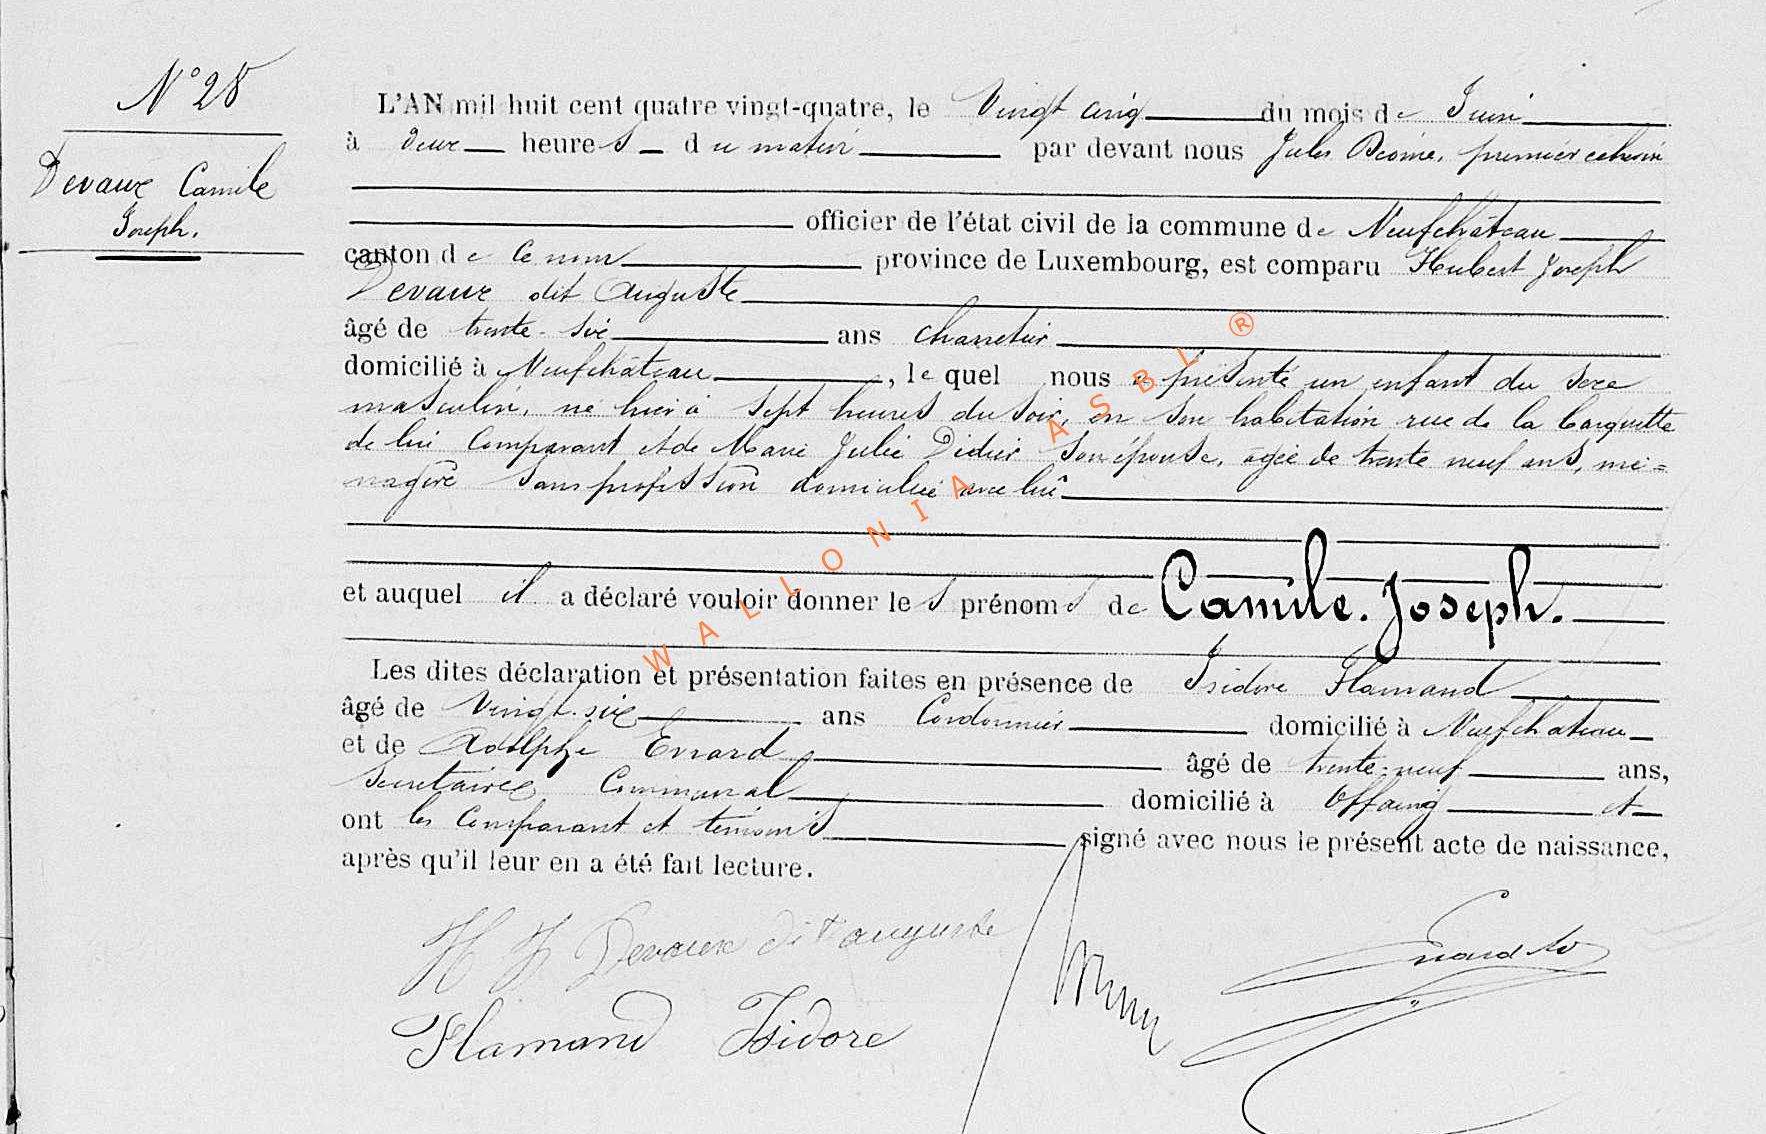 N° 28
Devaux Camile
Joseph.
L'AN mil huit cent quatre vingt-quatre, le Vingt cinq du mois de Juin
à deux heures du matin par devant nous Jules premier échevin
officier de l'état civil de la commune de Neufchâteau
canton de ce nom province de Luxembourg, est comparu Hubert Joseph
Devaux dit Auguste
âgé de trente-six ans charretier
domicilié à Neufchâteau, lequel nous a présenté un enfant du sexe
masculin, né hier à sept heures du soir, en son habitation rue de la
de lui Comparant et de Marie Julie Didier son épouse, agée de trente neuf ans, mé=
nagère sans profession domiciliée avec lui
et auquel il a déclaré vouloir donner les prénoms de Camile. Joseph.
Les dites déclaration et présentation faites en présence de Isidore Flamand
âgé de Vingt-six ans Cordonnier domicilié à Neufchateau
et de Adolphe Evrard âgé de trente-neuf ans,
Secrétaire Communal domicilié à Offaing et
ont les Comparant et témoins signé avec nous le présent acte de naissance,
après qu'il leur en a été fait lecture.
H J Devaux dit auguste
Flamand Isidore
WALLONIA ASBL ®